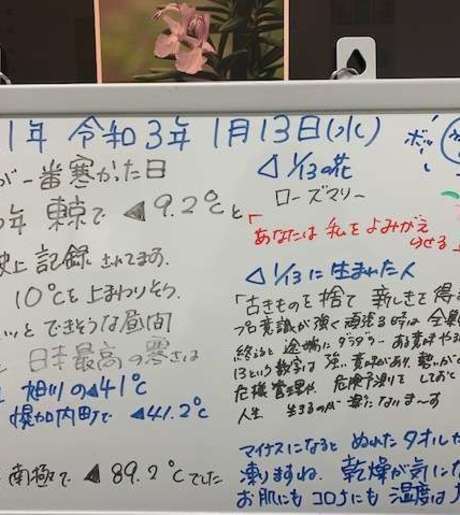 1年 令和3年 1月13日(水)
が一番寒かった日
年 東京で ▲9.2℃と
史上 記録されてます.
10℃を上まわりそう.
ッと できそうな昼間
日本最高の寒さは
旭川の▲41℃
幌加内町で ▲41.2℃
南極で ▲89.2℃でした
ボッ
◁ 1/13の花
ローズマリー
「あなたは 私をよみがえ
らせる
◁ 1/13に生まれた人
「古きものを捨て 新しきを得
プロ意識が強く 頑張る時は 全
終ると 途端に ダラダラー
13という数字は 強い意味があり
危機管理や 危険予測して しておくと
人生
マイナスになると ぬれたタオル
凍りますね. 乾燥が気にな
お肌にも コロナにも 温度は